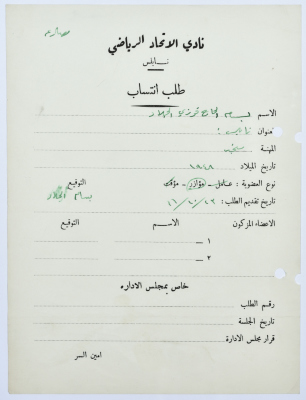 نادي الاتحاد الرياضي
نابلس
طلب انتساب
الاسم
عنوان نابلس
المهنة
تاريخ الميلاد ١٩٤٨
نوع العضوية : عامل - مؤازر - مؤقت التوقيع
تاريخ تقديم الطلب :
الاعضاء المزكون الاسم التوقيع
١ -
٢ -
خاص بمجلس الادارة
رقم الطلب
تاريخ الجلسة
قرار مجلس الادارة
امين السر